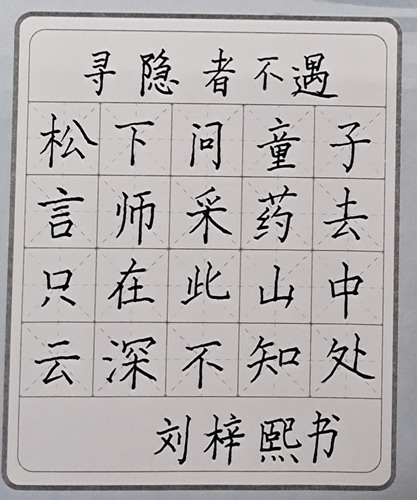 寻隐者不遇
松下问童子
言师采药去
只在此山中
云深不知处
刘梓熙书